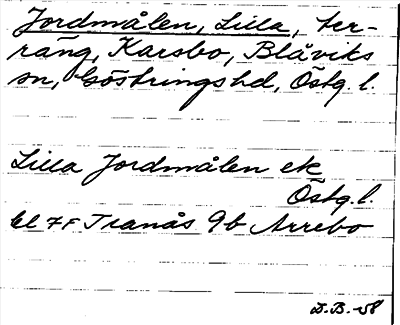 Jordmålen, Lilla, ter-
räng, Karsbo, Blåviks
sn, Göstringshd, Östg. l.
Lilla Jordmålen ek
Östg. l.
bl 7F Tranås 9b Arrebo
D.B. -58